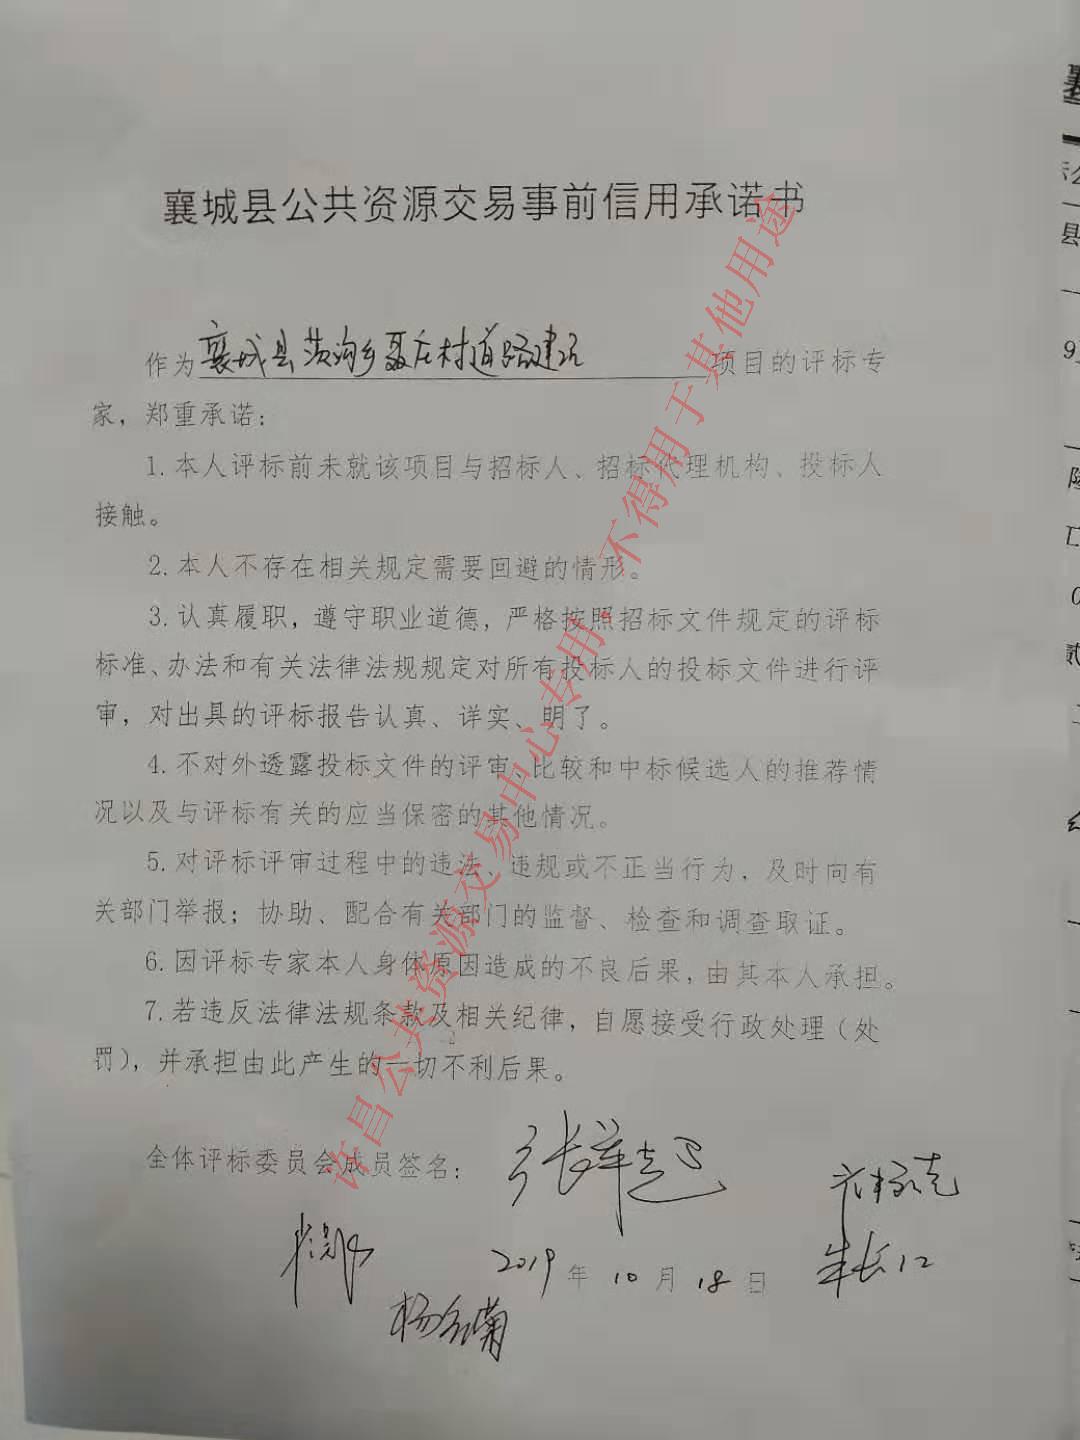 襄城县公共资源交易事前信用承诺书
作为襄城县茨沟乡聂庄村道路建设项目的评标专
家，郑重承诺：
1.本人评标前未就该项目与招标人、招标代理机构、投标人
接触。
2.本人不存在相关规定需要回避的情形。
3.认真履职，遵守职业道德，严格按照招标文件规定的评标
标准、办法和有关法律法规规定对所有投标人的投标文件进行评
审，对出具的评标报告认真、详实、明了。
4.不对外透露投标文件的评审、比较和中标候选人的推荐情
况以及与评标有关的应当保密的其他情况。
5.对评标评审过程中的违法、违规或不正当行为，及时向有
关部门举报；协助、配合有关部门的监督、检查和调查取证。
6.因评标专家本人身体原因造成的不良后果，由其本人承担。
7.若违反法律法规条款及相关纪律，自愿接受行政处理（处
罚），并承担由此产生的一切不利后果。
全体评标委员会成员签名：
2019年10月18日
许昌公共资源交易中心专用，不得用于其他用途
县